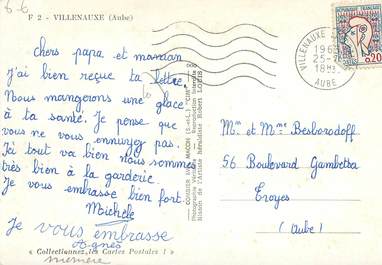 6-6
F 2 - VILLENAUXE (Aube)
chers papa et maman
j'ai bien reçue ta lettre.
Nous mangerons une glace
à ta santé. Je pense que
vous ne vous ennuyez pas.
Ici tout va bien nous sommes
très bien à la garderie.
Je vous embrasse bien fort.
Michèle
Je vous embrasse
Agnès
mémère
« Collectionnez les Cartes Postales ! »
COMBIER IMP. MACON
VILLENAUXE
25-
AUBE
RÉPUBLIQUE FRANÇAISE
0,20
Mm et Mme Besborodoff
56 Boulevard Gambetta
Troyes
(Aube)